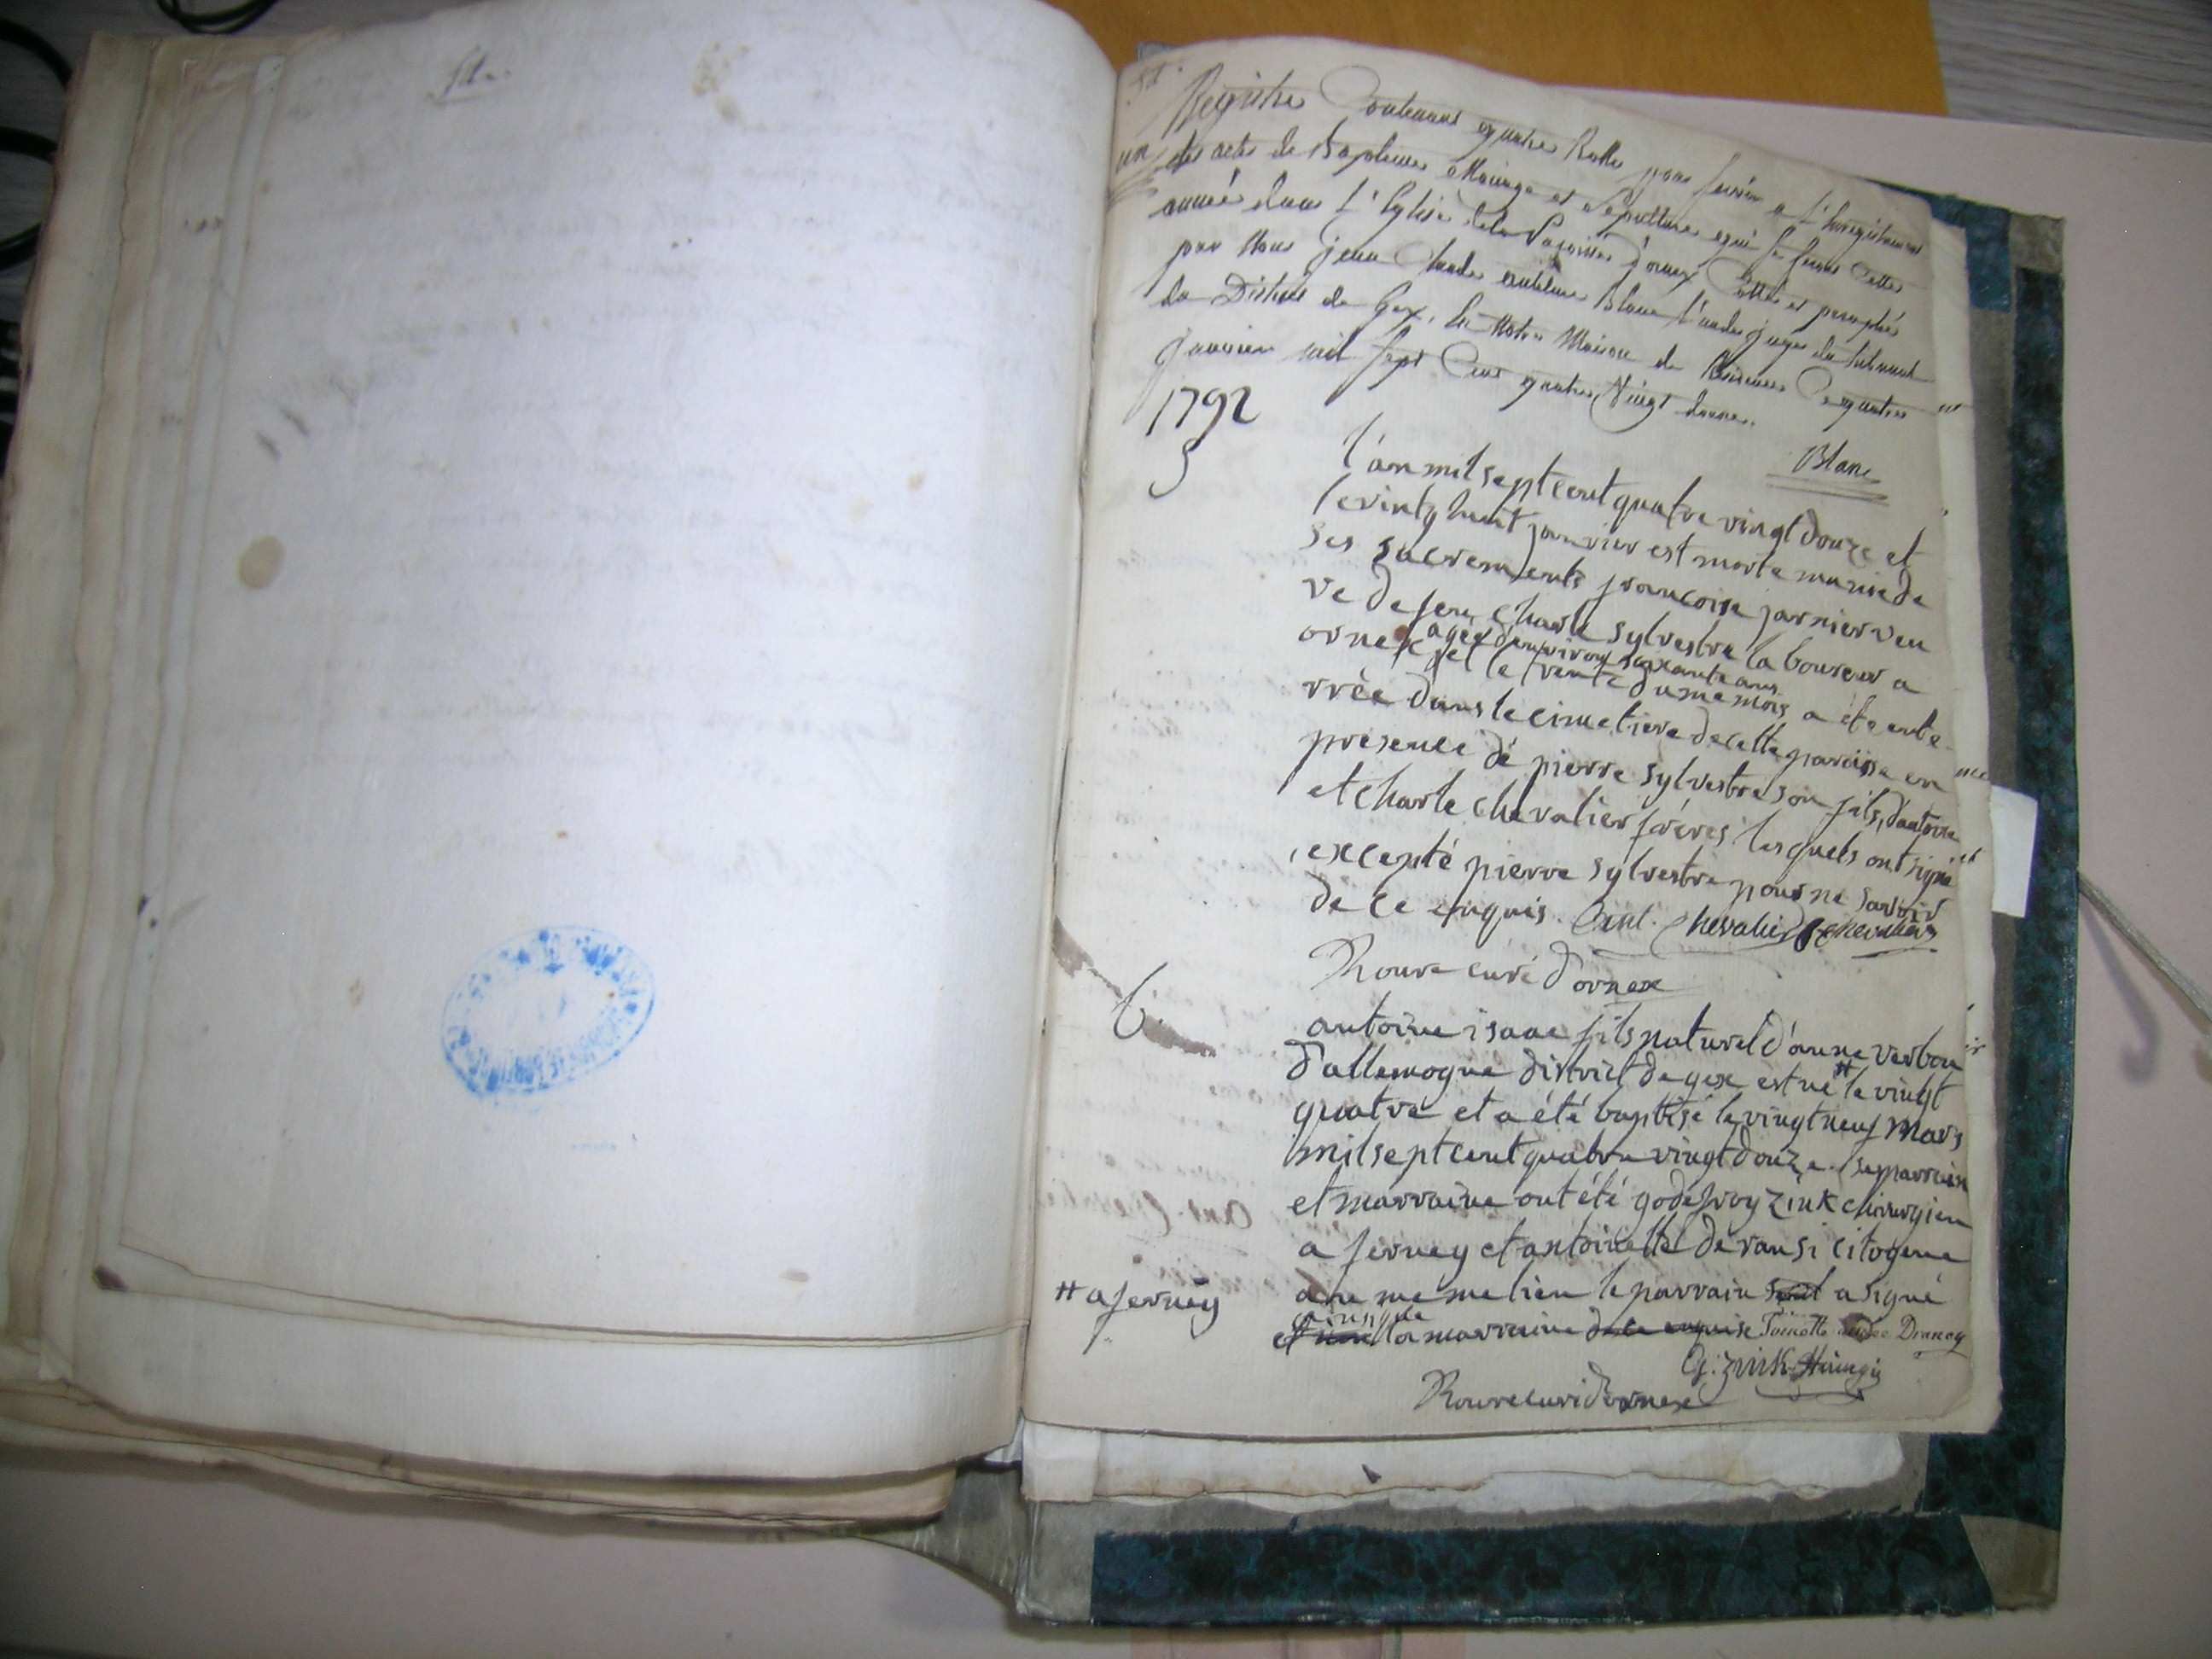 Registre Contenant quatre Rolles pour servir a l'Enregistrement
un des actes de Baptemes Mariage et Sepultures qui se feront Cette
année dans l'Eglise de la Paroisse d'ornex Cottés et paraphés
par Nous jean Claude Blanc l'un des juges du tribunal
du District de Gex, En Notre Maison de Ce quatre
janvier mil sept Cens quatre Vingt douze.
Blanc
1792
l'an mil sept cent quatre vingt douze et
le vintg huit janvier est morte munie de
ses sacrements francoise jarnier veu
ve de feu charle sylvestre laboureur a
ornex agée d'environ soixante ans
et le trente du meme mois a été enter
rrée dans le cimetiere de cette paroisse en
présence de pierre sylvestre son fils, d'antoine
et charle chevalier fréres lesquels ont signé
excepté pierre sylvestre pour ne savoir
de ce enquis. Ant. Chevalier C chevalier
Roure curé d'ornex
6
antoine isaac fils naturel d'anne verbou
d'allemogne district de gex est né # le vingt
quatre et a été baptisé le vingt neuf mars
mil sept cent quatre vingt douze. ses parrain
et marraine ont été godefroy zink chirurgien
a ferney et antoinette deransi citoyene
du meme lieu le parrain seul a signé
# a ferney
ainsi que
et la marraine de ce enquise
G: zink
Roure curé d'ornex